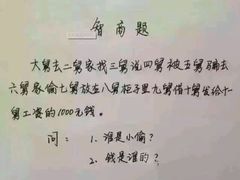 智商题
大舅去二舅家找三舅说四舅被五舅骗去
六舅家偷七舅放在八舅柜子里九舅借十舅发给十一
舅工资的1000元钱。
问：1. 谁是小偷？
2. 钱是谁的？